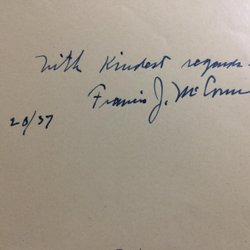 With Kindest regards -
Francis J. McConn
20/37